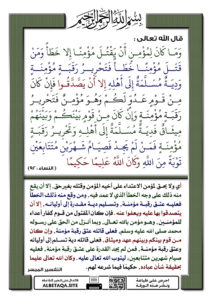 بسم الله الرحمن الرحيم
قال الله تعالى :
وَمَا كَانَ لِمُؤْمِنٍ أَنْ يَقْتُلَ مُؤْمِنًا إِلَّا خَطَأً وَمَنْ
قَتَلَ مُؤْمِنًا خَطَأً فَتَحْرِيرُ رَقَبَةٍ مُؤْمِنَةٍ
وَدِيَةٌ مُسَلَّمَةٌ إِلَى أَهْلِهِ إِلَّا أَنْ يَصَّدَّقُوا فَإِنْ كَانَ
مِنْ قَوْمٍ عَدُوٍّ لَكُمْ وَهُوَ مُؤْمِنٌ فَتَحْرِيرُ
رَقَبَةٍ مُؤْمِنَةٍ وَإِنْ كَانَ مِنْ قَوْمٍ بَيْنَكُمْ وَبَيْنَهُمْ
مِيثَاقٌ فَدِيَةٌ مُسَلَّمَةٌ إِلَى أَهْلِهِ وَتَحْرِيرُ رَقَبَةٍ
مُؤْمِنَةٍ فَمَنْ لَمْ يَجِدْ فَصِيَامُ شَهْرَيْنِ مُتَتَابِعَيْنِ
تَوْبَةً مِنَ اللَّهِ وَكَانَ اللَّهُ عَلِيمًا حَكِيمًا
( النساء : ٩٢ )
أي ولا يحق لمؤمن الاعتداء على أخيه المؤمن وقتله بغير حق، إلا أن يقع
منه ذلك على وجه الخطأ الذي لا عمد فيه، ومن وقع منه ذلك الخطأ
فعليه عتق رقبة مؤمنة، وتسليم دية مقدرة إلى أوليائه، إلا أن
يتصدقوا بها عليه ويعفوا عنه. فإن كان المقتول من قوم كفار أعداء
للمؤمنين، وهو مؤمن بالله تعالى، وبما أنزل من الحق على رسوله
محمد صلى الله عليه وسلم، فعلى قاتله عتق رقبة مؤمنة، وإن كان
من قوم بينكم وبينهم عهد وميثاق، فعلى قاتله دية تسلم إلى أوليائه
وعتق رقبة مؤمنة، فمن لم يجد القدرة على عتق رقبة مؤمنة، فعليه
صيام شهرين متتابعين، ليتوب الله تعالى عليه. وكان الله تعالى عليما
بحقيقة شأن عباده، حكيما فيما شرعه لهم.
التفسير الميسر
ALBETAQA.SITE